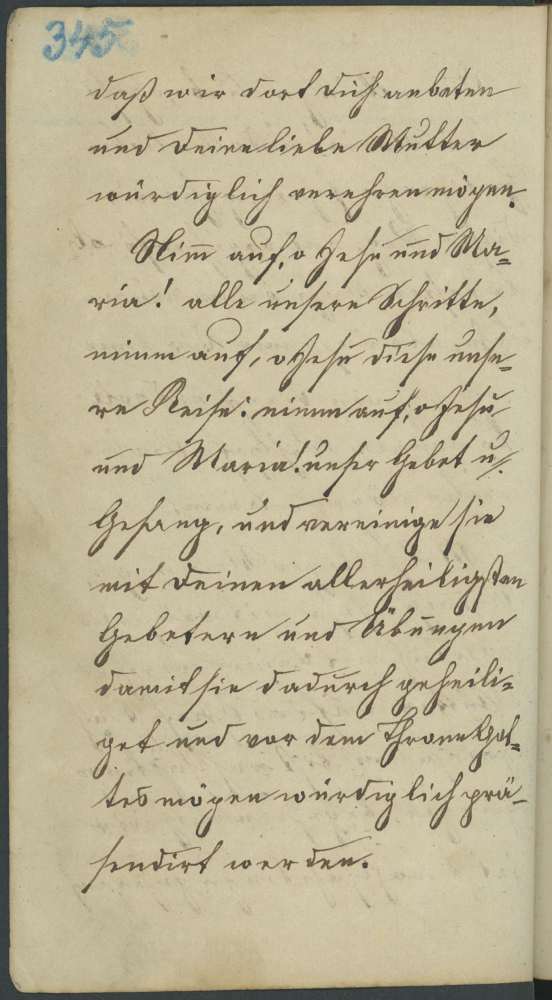 345
daß wir dort dich anbeten
und deine liebe Mutter
würdiglich verehren mögen.
Nim̄ auf, o Jesu und Ma=
ria! alle unsere Schritte,
nimm auf, o Jesu diese unse=
re Reise: nimm auf, o Jesu
und Maria! unser Gebet u.
Gesang, und vereinige sie
mit deinen allerheiligsten
Gebetern und Übungen
damit sie dadurch geheili=
get und vor dem Throne Got=
tes mögen würdiglich prä=
sendirt werden.